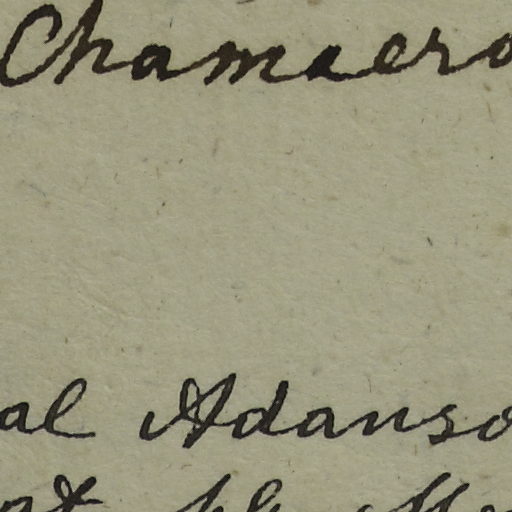 Chamaero
al Adanso